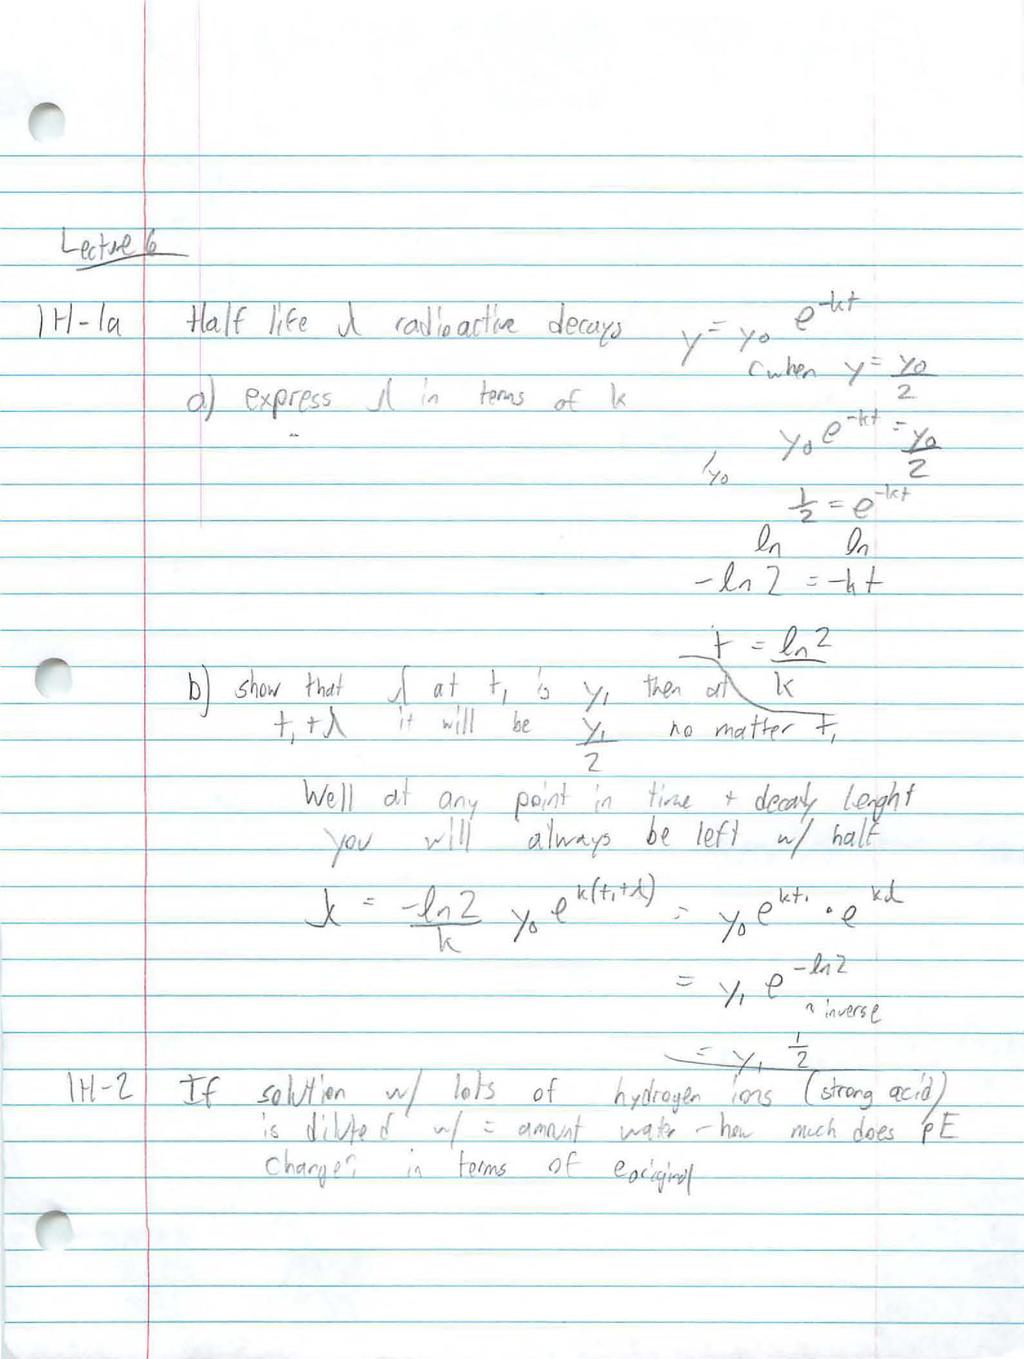 Lecture 6
1H-1a Half life λ radioactive decays y = y₀ e^-kt
when y = y₀/2
a) express λ in terms of k
y₀ e^-kt = y₀/2
/y₀
1/2 = e^-kt
ln ln
-ln 2 = -kt
t = ln 2/k
b) show that if at t₁ is y₁ then at
t₁ + λ it will be y₁/2 no matter t₁
Well at any point in time + decay lenght
you will always be left w/ half
λ = -ln 2/k y₀ e^k(t₁+λ) = y₀ e^kt₁ · e^kλ
= y₁ e^-ln 2
^ inverse
= y₁ 1/2
1H-2 If solution w/ lots of hydrogen ions (strong acid)
is diluted w/ = amount water - how much does pE
change? in terms of eoriginal